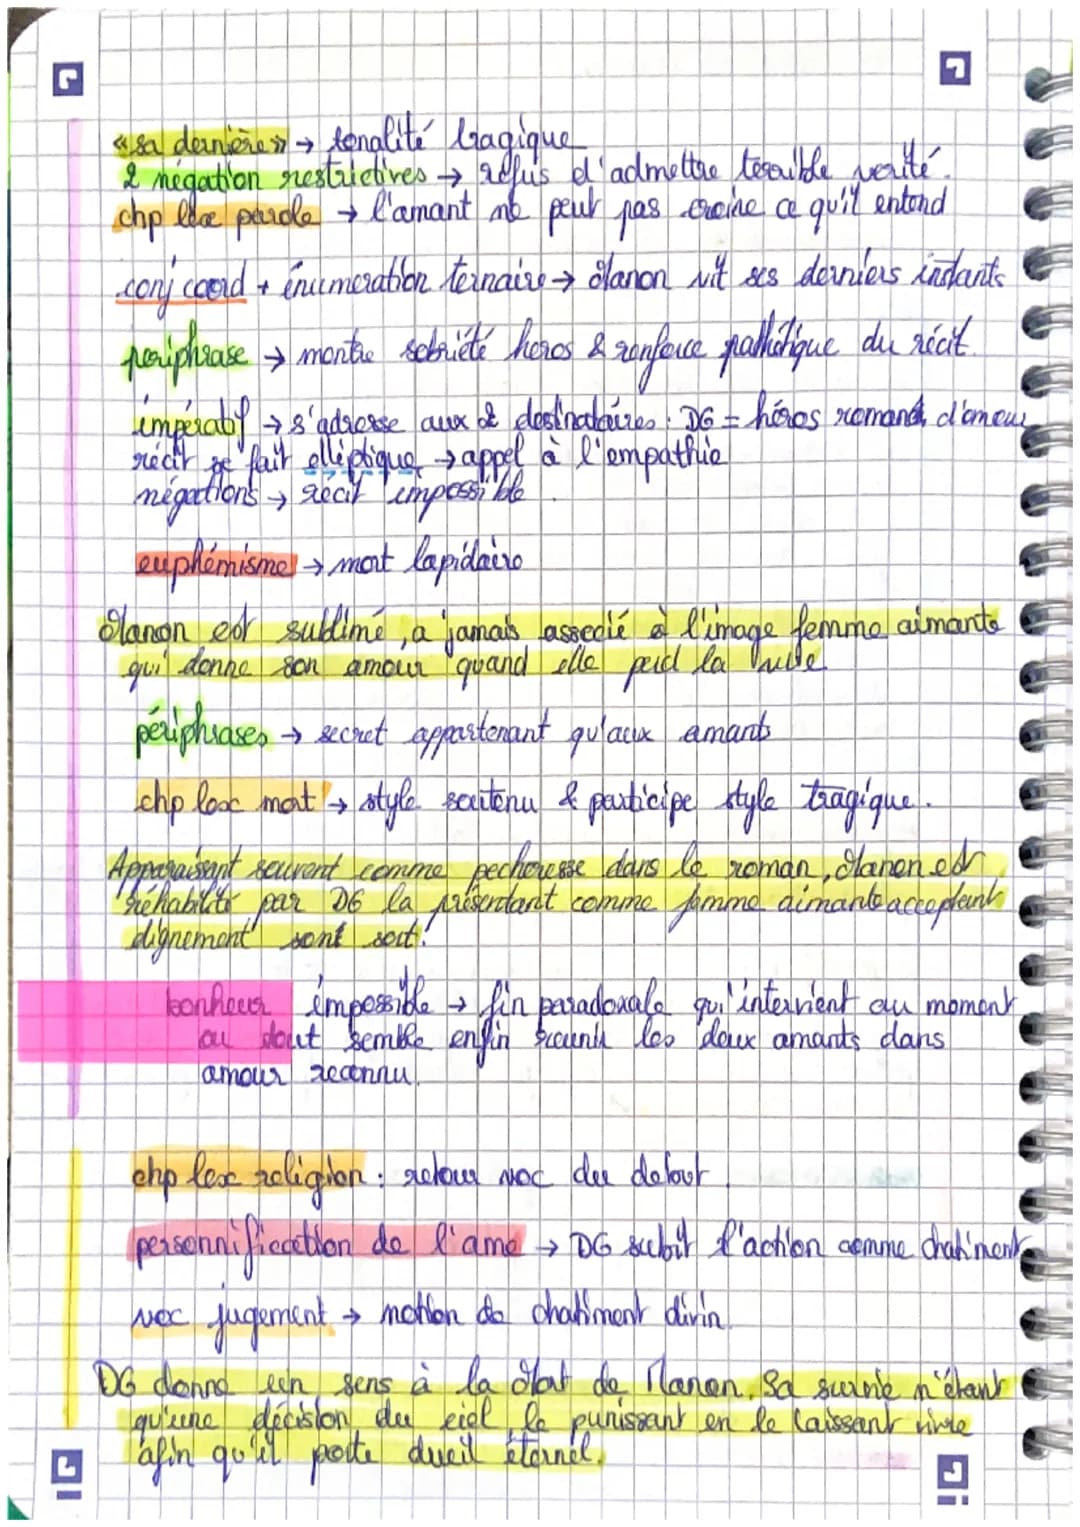 « sa dernière » → tonalité tragique
2 négation restrictives → refus d'admettre terrible verité.
chp lexc parole → l'amant ne peut pas croire ce qu'il entend
conj coord + énumeration ternaire → Manon vit ses derniers instants
periphrase → montre sobriété heros & renforce pathétique du récit.
impératif → s'adresse aux 2 destinataires : DG = héros romand d'amour
récit se fait elléptique → appel à l'empathie
négations → récit impossible
euphémisme → mort lapidaire
Manon est sublimé, a jamais associé à l'image femme aimante
qui donne son amour quand elle perd la vie
périphrases → secret appartenant qu'aux amants
chp lexc mort → style soutenu & participe style tragique.
Apparaissant souvent comme pecheresse dans le roman, Manon est
réhabilité par DG la présentant comme femme aimante acceptant
dignement sont sort.
bonheur impossible → fin paradoxale qui intervient au moment
ou tout semble enfin réunir les deux amants dans
amour reconnu.
chp lexc religion : retour voc du debut.
personnification de l'ame → DG subit l'action comme chatiment
voc jugement → notion de chatiment divin.
DG donne un sens à la Mort de Manon. Sa survie n'étant
qu'une décision du ciel le punissant en le laissant vivre
afin qu'il porte dueil éternel.